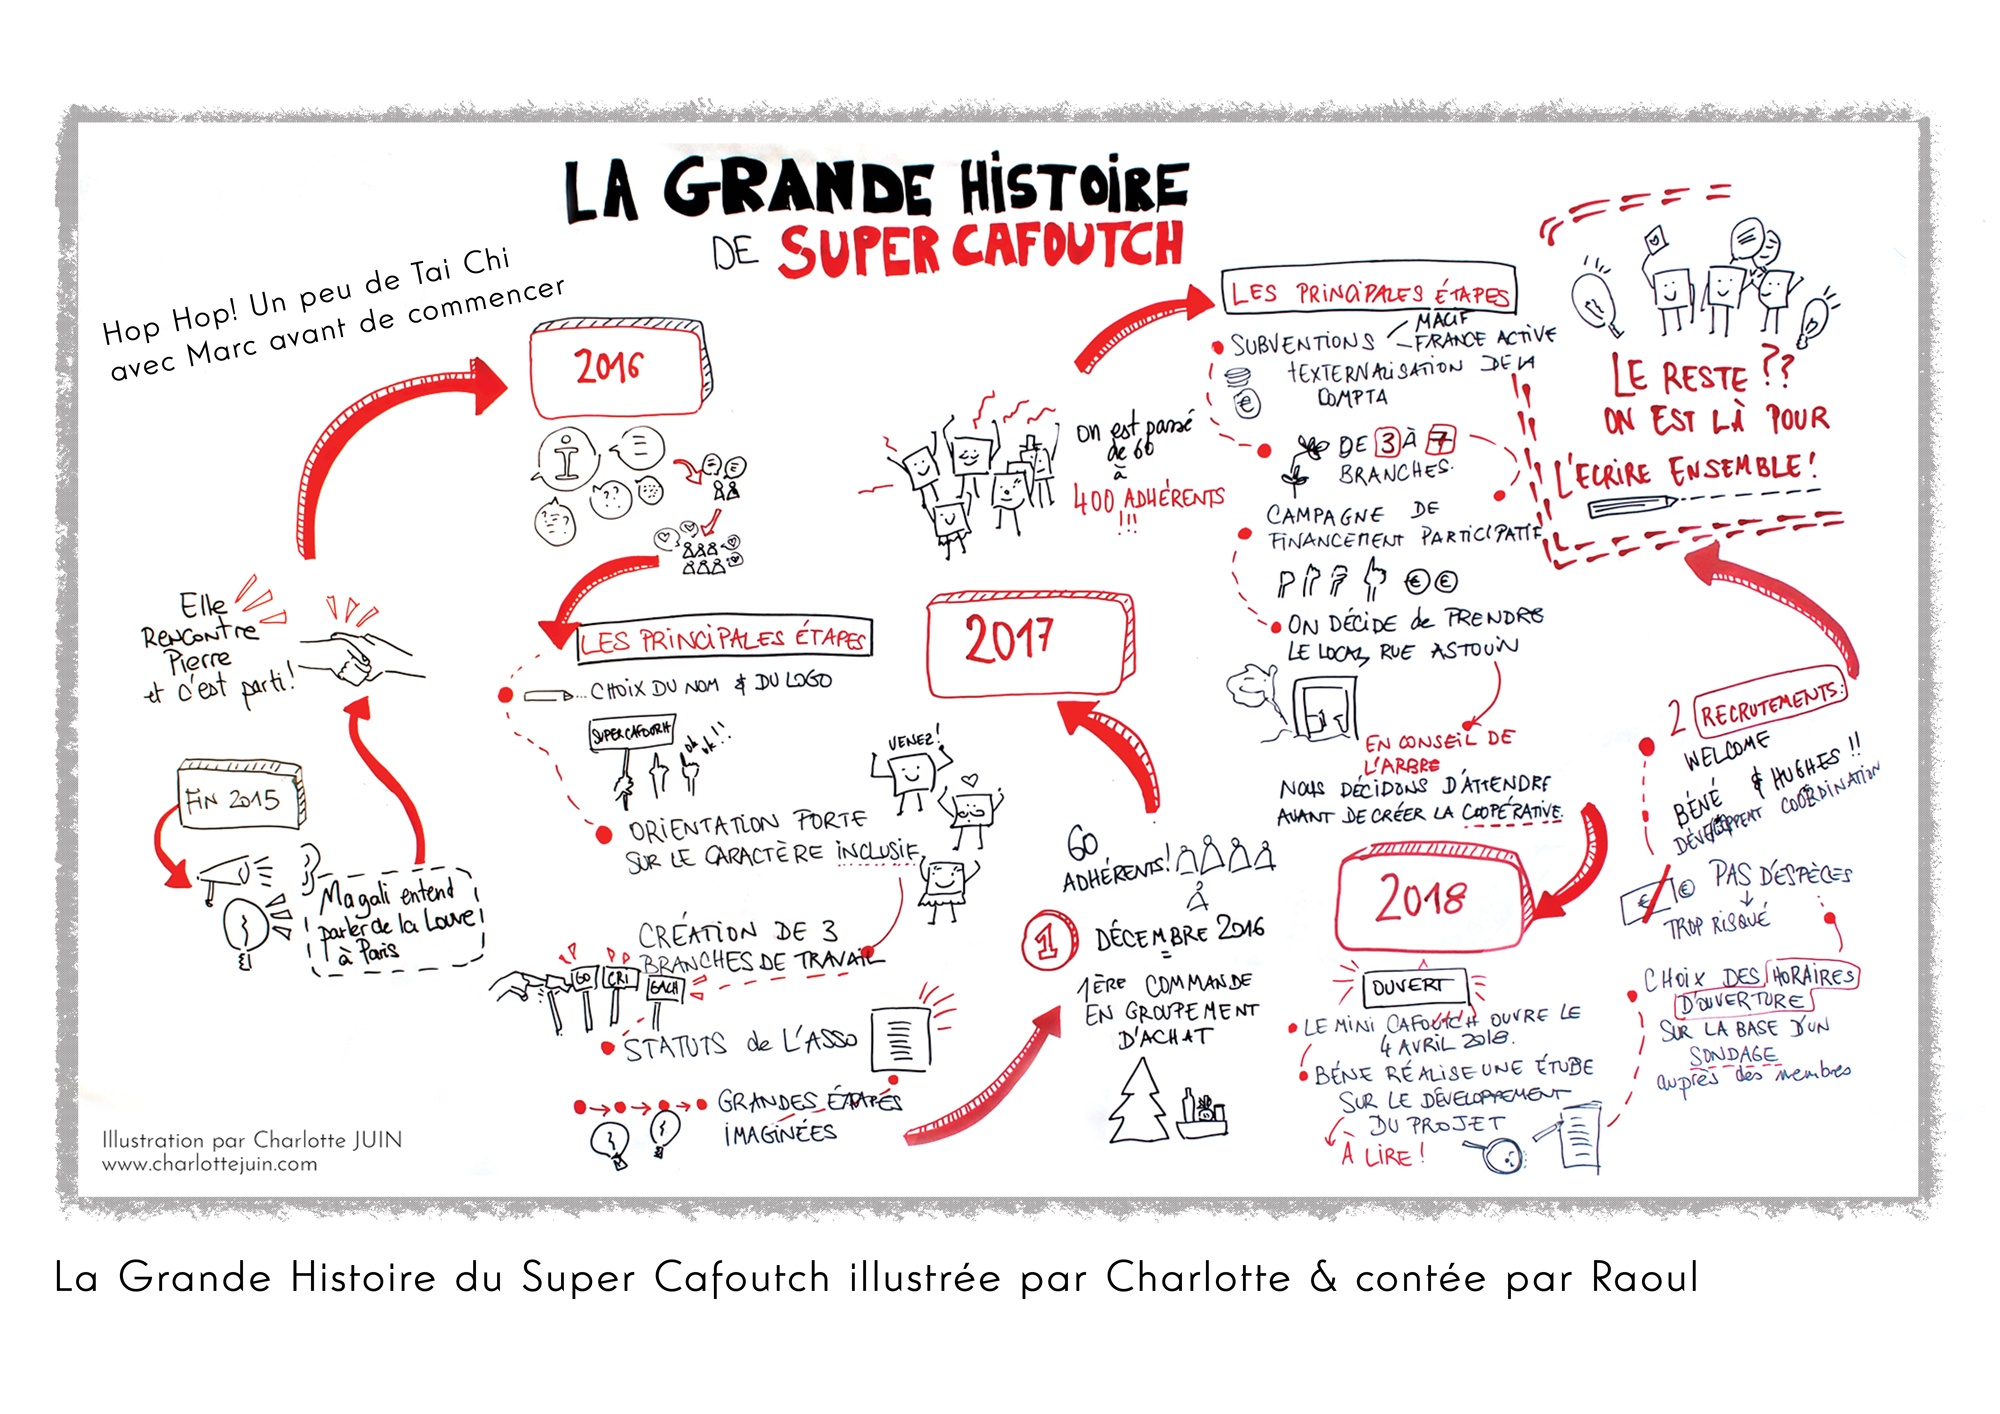 LA GRANDE HISTOIRE
DE SUPER CAFOUTCH
Hop Hop! Un peu de Tai Chi
avec Marc avant de commencer
FIN 2015
Magali entend
parler de la Louve
à Paris
Elle
RENCONTRE
Pierre
et c'est parti!
2016
i
??
LES PRINCIPALES ÉTAPES
CHOIX DU NOM & DU LOGO
SUPERCAFOUTCH
ok
ok!!
ORIENTATION FORTE
SUR LE CARACTÈRE INCLUSIF
VENEZ!
CRÉATION DE 3
BRANCHES DE TRAVAIL
GO
CRI
GACH
STATUTS de L'ASSO
GRANDES ÉTAPES
IMAGINÉES
60
ADHÉRENTS!
1
DÉCEMBRE 2016
1ÈRE COMMANDE
EN GROUPEMENT
D'ACHAT
2017
on est passé
de 60
à
400 ADHÉRENTS
!!!
LES PRINCIPALES ÉTAPES
SUBVENTIONS
MACIF
FRANCE ACTIVE
+EXTERNALISATION DE LA
COMPTA
€
DE 3 À 7
BRANCHES.
CAMPAGNE DE
FINANCEMENT PARTICIPATIF
€ €
ON DÉCIDE de PRENDRE
LE LOCAL RUE ASTOUIN
EN CONSEIL DE
L'ARBRE
NOUS DÉCIDONS D'ATTENDRE
AVANT DE CRÉER LA COOPÉRATIVE.
2018
OUVERT
LE MINI CAFOUTCH OUVRE LE
4 AVRIL 2018.
BÉNÉ RÉALISE UNE ÉTUDE
SUR LE DÉVELOPPEMENT
DU PROJET
À LIRE!
2 RECRUTEMENTS:
WELCOME
BÉNÉ & HUGHES!!
DÉVELOPPENT COORDINATION
€ €
PAS D'ESPÈCES
TROP RISQUÉ
CHOIX DES HORAIRES
D'OUVERTURE
SUR LA BASE D'UN
SONDAGE
auprès des membres
LE RESTE ??
ON EST LÀ POUR
L'ECRIRE ENSEMBLE!
Illustration par Charlotte JUIN
www.charlottejuin.com
La Grande Histoire du Super Cafoutch illustrée par Charlotte & contée par Raoul